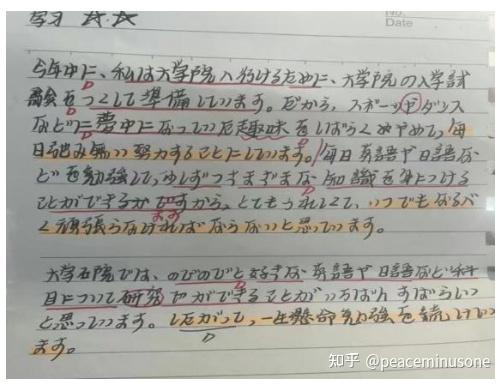 学习
No.
Date
今年中に、私は大学院へ行けるために、大学院の入学試
験をつくして準備しています。だから、スポーツやダンス
などに夢中になっていた趣味をしばらくやめて、毎
日弛み無い努力することにしています。毎日英語や日語な
どを勉強して、少しずつさまざまな知識を身につける
ことができるですから、とてもうれしくて、いつでもなるべ
く頑張らなければならないと思っています。
大学院では、のびのびと好きな英語や日語など科
目について研究ができることがいちばんすばらしい
と思っています。したがって、一生懸命勉強を続けてい
ます。
知乎 @peaceminusone